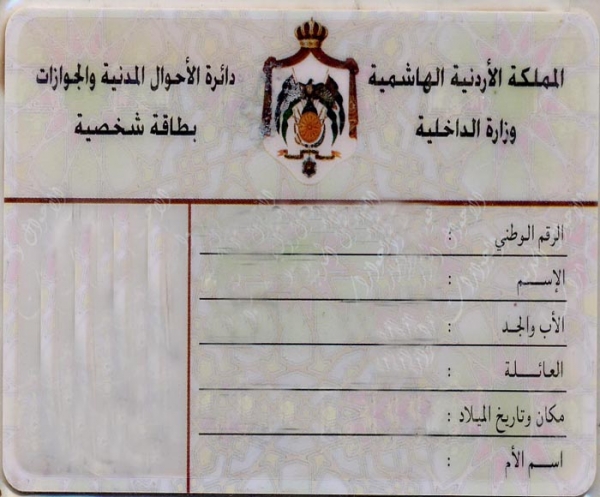 المملكة الأردنية الهاشمية
وزارة الداخلية
دائرة الأحوال المدنية والجوازات
بطاقة شخصية
الرقم الوطني :
الإســـم :
الأب والجـد :
العـائـــلة :
مكان وتاريخ الميلاد :
اسـم الأم :